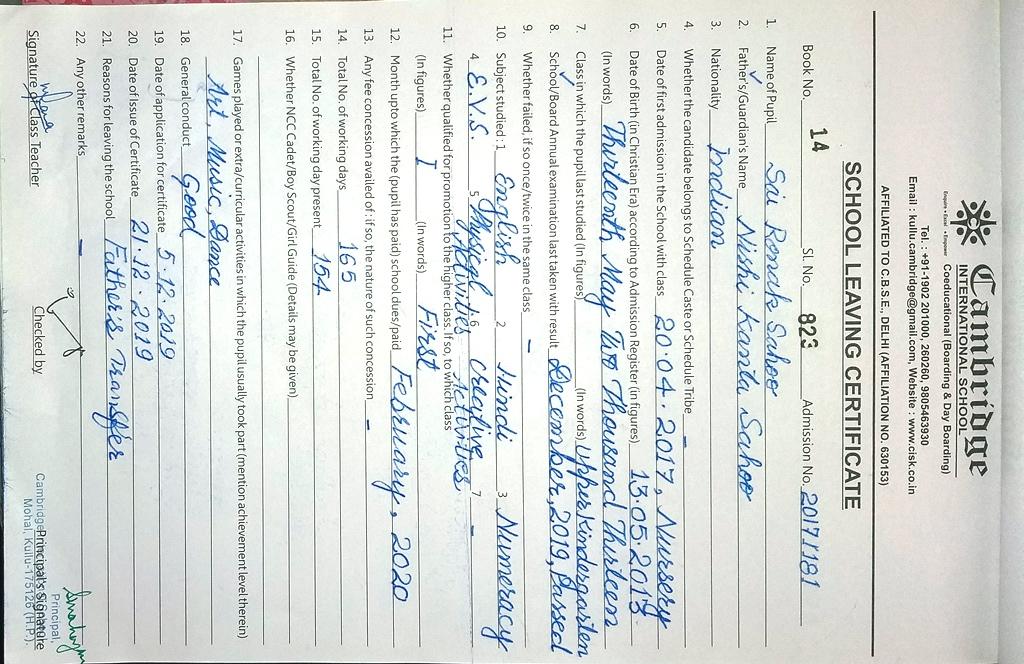 Cambridge
INTERNATIONAL SCHOOL
Coeducational (Boarding & Day Boarding)
Tel : +91-1902 201000, 260260, 9805463930
Email : kullu.cambridge@gmail.com, Website : www.cisk.co.in
AFFILIATED TO C.B.S.E., DELHI (AFFILIATION NO. 630153)
SCHOOL LEAVING CERTIFICATE
Book No. 14 Sl. No. 823 Admission No. 2017/1181
1. Name of Pupil Sai Ronak Sahoo
2. Father's/Guardian's Name Nishi Kanta Sahoo
3. Nationality Indian
4. Whether the candidate belongs to Schedule Caste or Schedule Tribe -
5. Date of first admission in the School with class 20.04.2017, Nursery
6. Date of Birth (in Christian Era) according to Admission Register (in figures) 13.05.2013
(In words) Thirteenth May Two Thousand Thirteen
7. Class in which the pupil last studied (In figures) (In words) Upper Kindergarten
8. School/Board Annual examination last taken with result December, 2019, Passed
9. Whether failed, if so once/twice in the same class -
10. Subject studied : 1 English 2 Hindi 3 Numeracy
4 E.V.S. 5 Physical Activities 6 Creative Activities 7 -
11. Whether qualified for promotion to the higher class. If so, to which class
(In figures) I (In words) First
12. Month upto which the (pupil has paid) school dues/paid February, 2020
13. Any fee concession availed of : if so, the nature of such concession -
14. Total No. of working days 165
15. Total No. of working day present 154
16. Whether NCC Cadet/Boy Scout/Girl Guide (Details may be given)
17. Games played or extra/curricular activities in which the pupil usually took part (mention achievement level therein)
Art, Music, Dance
18. General conduct Good
19. Date of application for certificate 5.12.2019
20. Date of Issue of Certificate 21.12.2019
21. Reasons for leaving the school Father's Transfer
22. Any other remarks -
Signature of Class Teacher Checked by Principal's Signature
Principal,
Cambridge
Mohal, Kullu-175126 (H.P.).